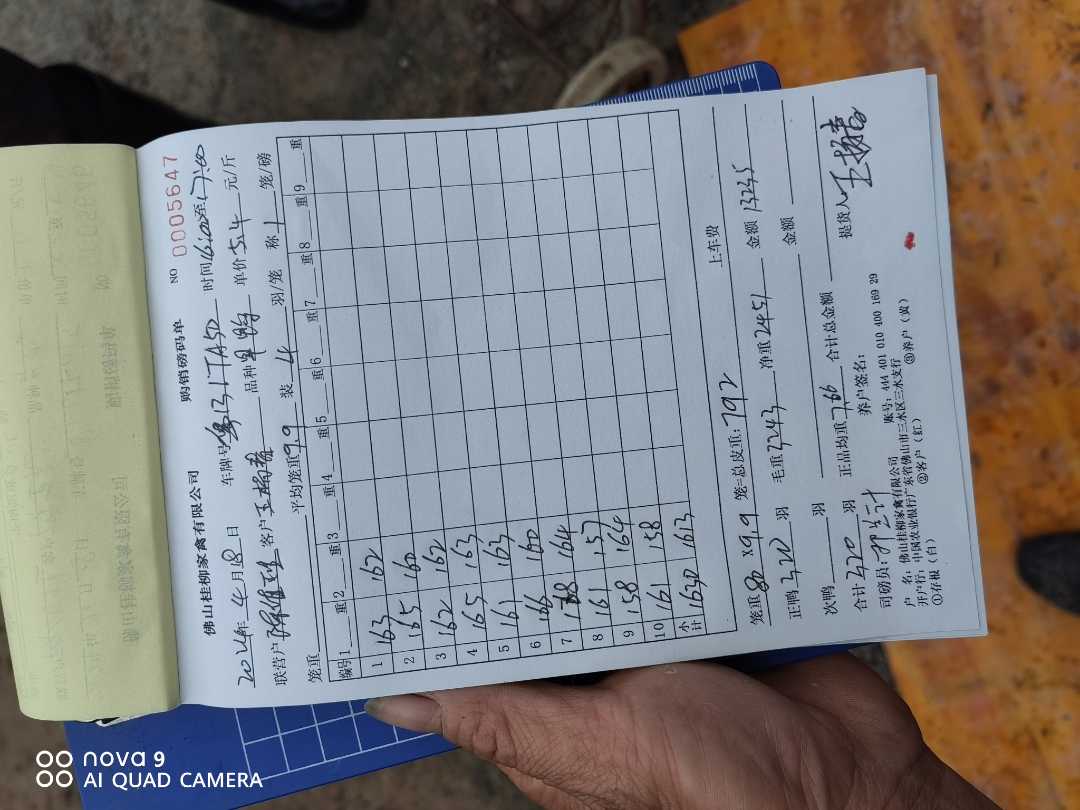 NO 0005647
佛山桂柳家禽有限公司 购销磅码单
2024年4月18日 车牌号 时间16:00至17:00
联营户 客户 品种 单价5.4元/斤
笼重 平均笼重9.9 装4羽/笼 称1笼/磅
编号 1 重 2 重 3 重 4 重 5 重 6 重 7 重 8 重 9 重
1 163 162
2 155 160
3 162 162
4 165 163
5 161 163
6 166 160
7 164
8 161 157
9 158 164
10 161 158
小计 1630 1613
上车费
笼重80×9.9 笼=总皮重:792
正鸭320羽 毛重3243 净重2451 金额13235
次鸭 羽 金额
合计320羽 正品均重7.66 合计总金额
司磅员: 养户签名: 提货人
户 名:佛山桂柳家禽有限公司 账号:444 401 010 400 169 29
开户行:中国农业银行广东省佛山市三水区三水支行
①存根(白) ②客户(红) ③养户(黄)
nova 9
AI QUAD CAMERA